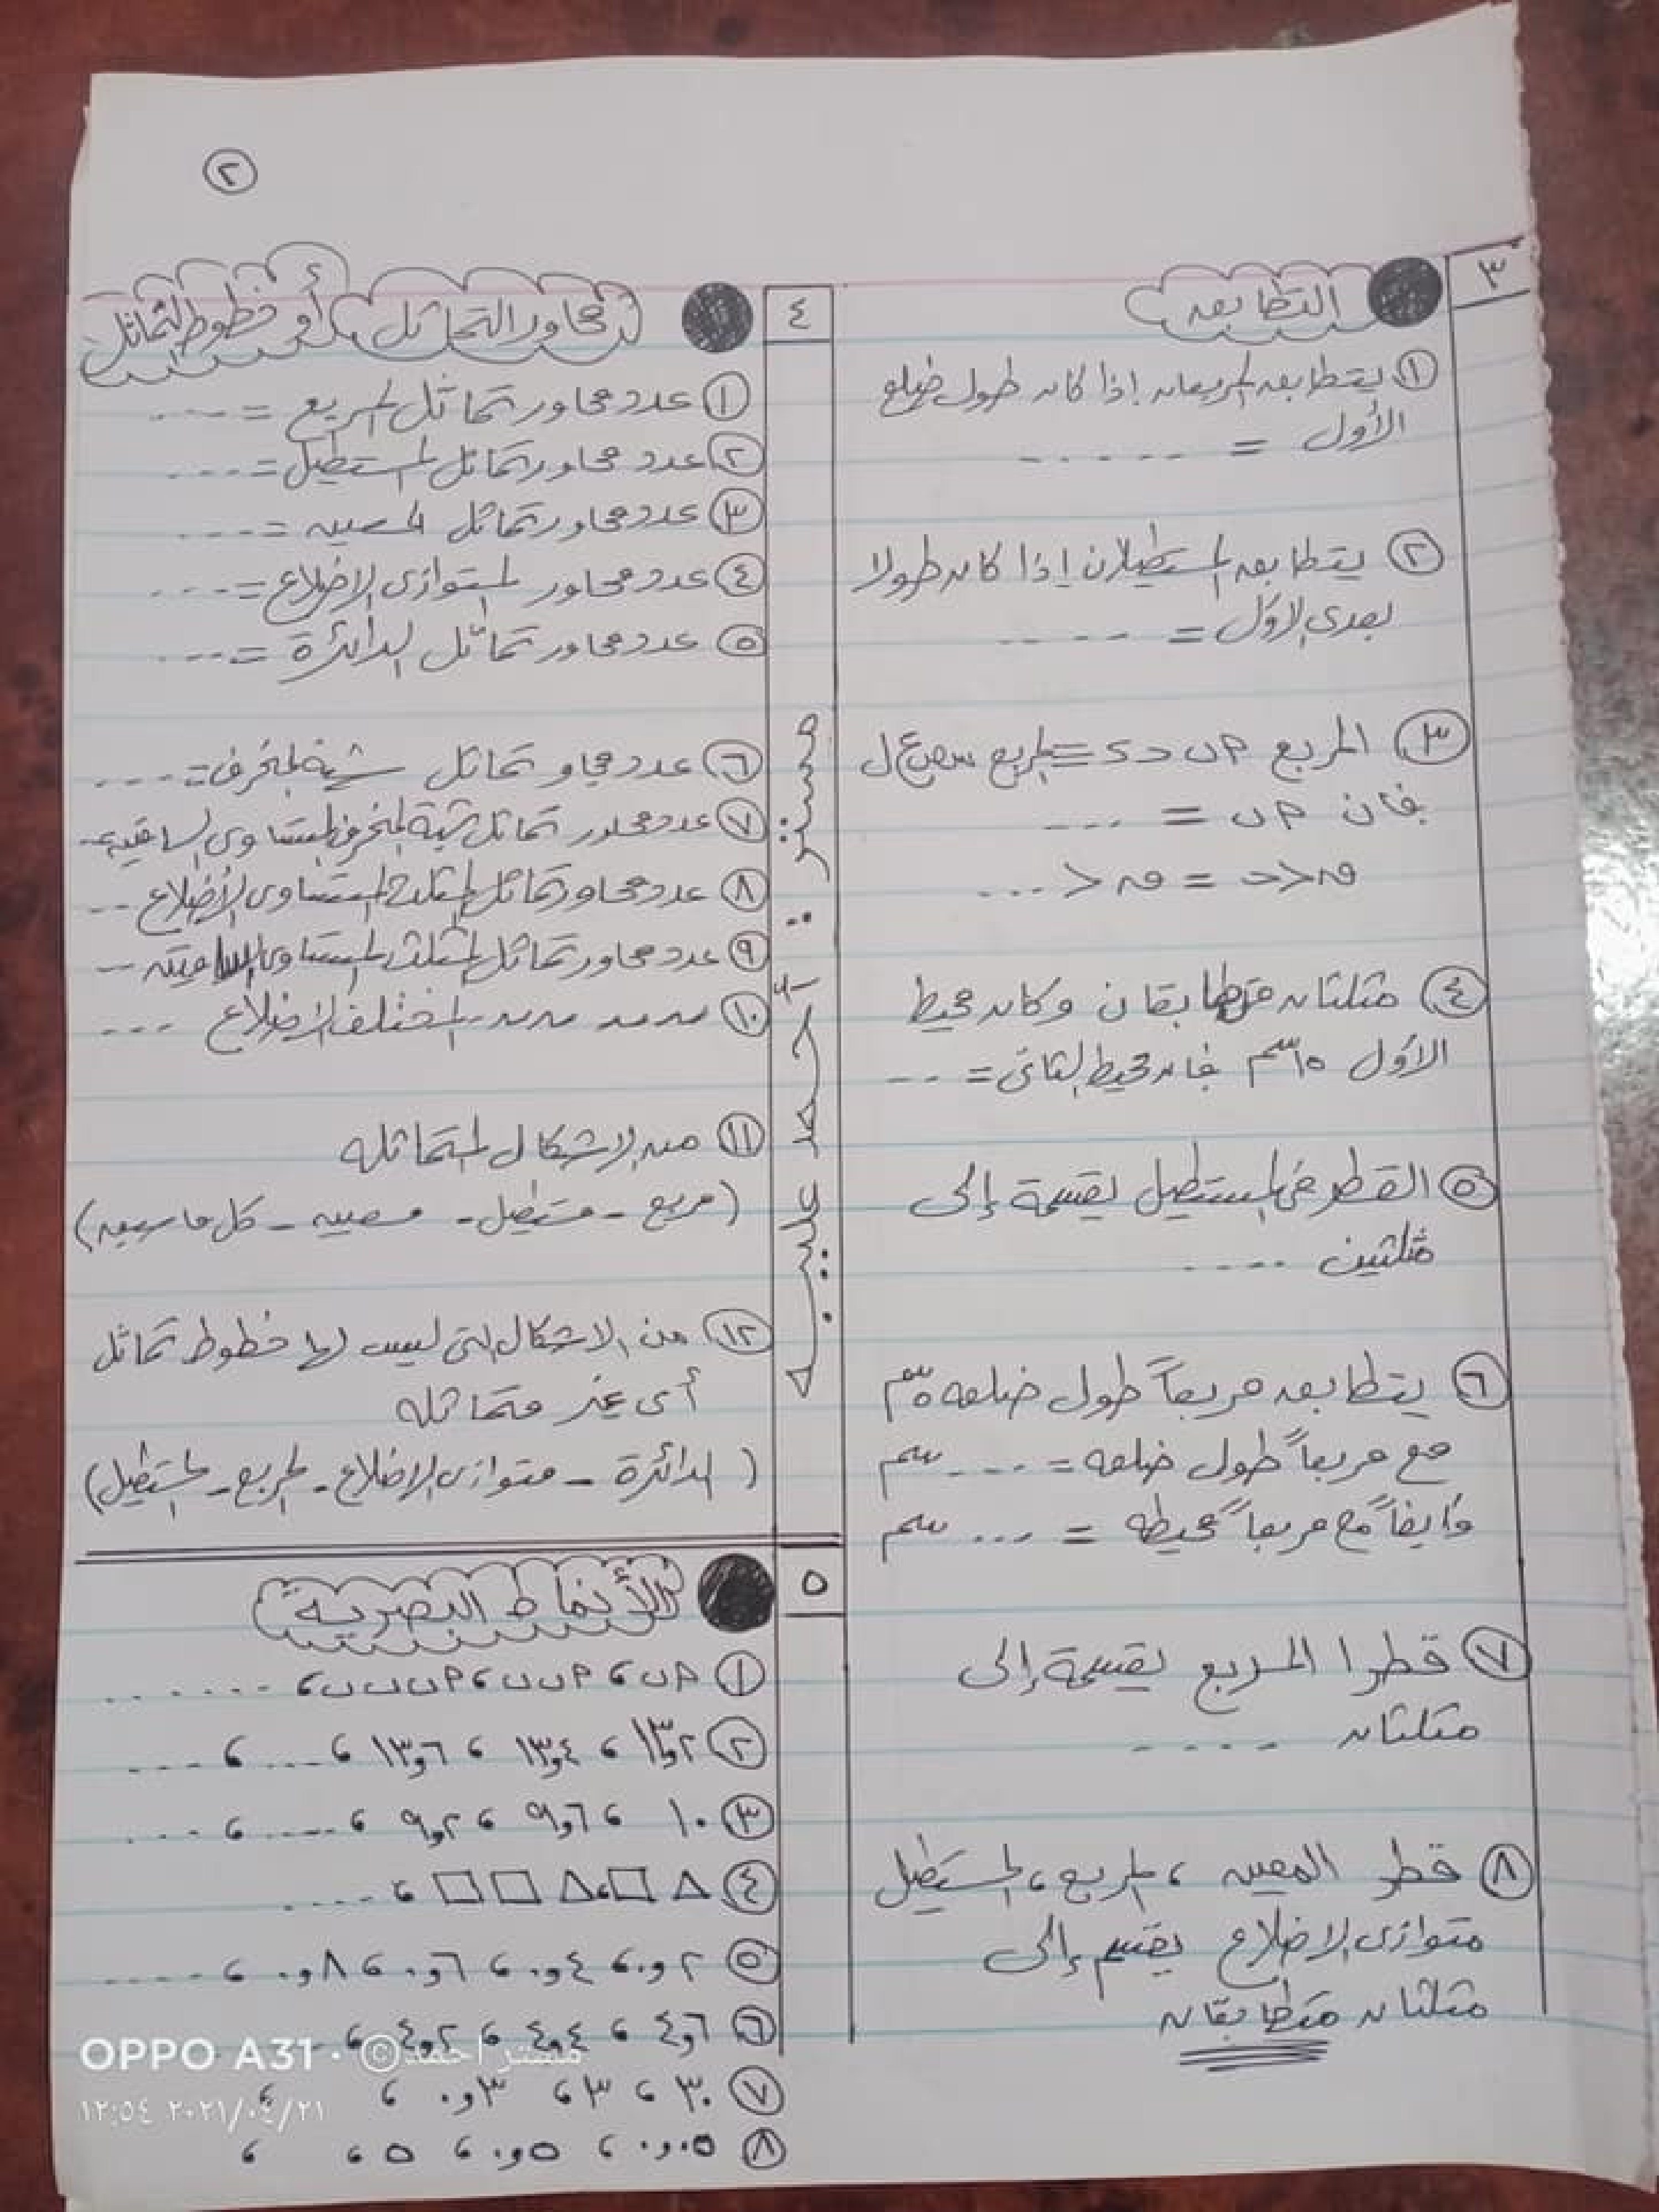 ٢
٣
التطابق
١ يتطابق المربعان إذا كان طول ضلع
الأول = .......
٢ يتطابق المستطيلان إذا كان طولا
بعدى الأول = .....
٣ المربع م ب ح د ≡ المربع س ص ع ل
فان م ب = ...
ق < ح = ق < ...
٤ مثلثان متطابقان وكان محيط
الأول ١٥سم فان محيط الثانى = ...
٥ القطر فى المستطيل يقسمة إلى
مثلثين ....
٦ يتطابق مربعاً طول ضلعه ٥سم
مع مربعاً طول ضلعه = .... سم
وأيضاً مع مربعاً محيطه = ... سم
٧ قطرا المربع يقسمة إلى
مثلثان ....
٨ قطر المعين ، المربع ، المستطيل
متوازى الاضلاع يقسم إلى
مثلثان متطابقان
مستر : أحمد عطيه
٤
محاور التماثل أو خطوط التماثل
١ عدد محاور تماثل المربع = ....
٢ عدد محاور تماثل المستطيل = ....
٣ عدد محاور تماثل المعين = ....
٤ عدد محاور المتوازى الاضلاع = ....
٥ عدد محاور تماثل الدائرة = ....
٦ عدد محاو تماثل شبة المنحرف = ....
٧ عدد محاور تماثل شبة المنحرف المتساوى الساقين =
٨ عدد محاور تماثل المثلث المتساوى الأضلاع ...
٩ عدد محاور تماثل المثلث المتساوى الساقين ...
١٠ المختلف الاضلاع ...
١١ من الاشكال المتماثله
(مربع - مستطيل - معين - كل ما سبق)
١٢ من الاشكال التى ليس لها خطوط تماثل
أى غير متماثله
(الدائرة - متوازى الاضلاع - المربع - المستطيل)
٥
الأنماط البصرية
١ م ب ، م ب ب ، م ب ب ب ، .......
٢ ١٣,٢ ، ١٣,٤ ، ١٣,٦ ، .... ، ....
٣ ١٠ ، ٩,٦ ، ٩,٢ ، .... ، ....
٤ △ □ ، △ □ □ ، ....
٥ ٠,٢ ، ٠,٤ ، ٠,٦ ، ٠,٨ ، ....
٦ ٤,٦ ، ٤,٤ ، ٤,٢ ، ....
٧ ٣٠ ، ٣ ، ٠,٣ ، ،
٨ ٠,٠٥ ، ٠,٥ ، ٥ ، ،
OPPO A31 · © مستر احمد
٢٠٢١/٠٤/٢١ ١٢:٥٤